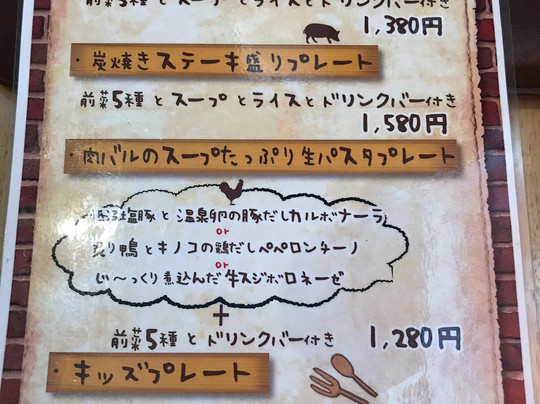 前菜5種とスープとライスとドリンクバー付き
1,380円
・炭焼きステーキ盛りプレート
前菜5種とスープとライスとドリンクバー付き
1,580円
・肉バルのスープたっぷり生パスタプレート
塩豚と温泉卵の豚だしカルボナーラ
or
炙り鴨とキノコの鶏だしペペロンチーノ
or
じ〜っくり煮込んだ牛スジボロネーゼ
+
前菜5種とドリンクバー付き
1,280円
・キッズプレート